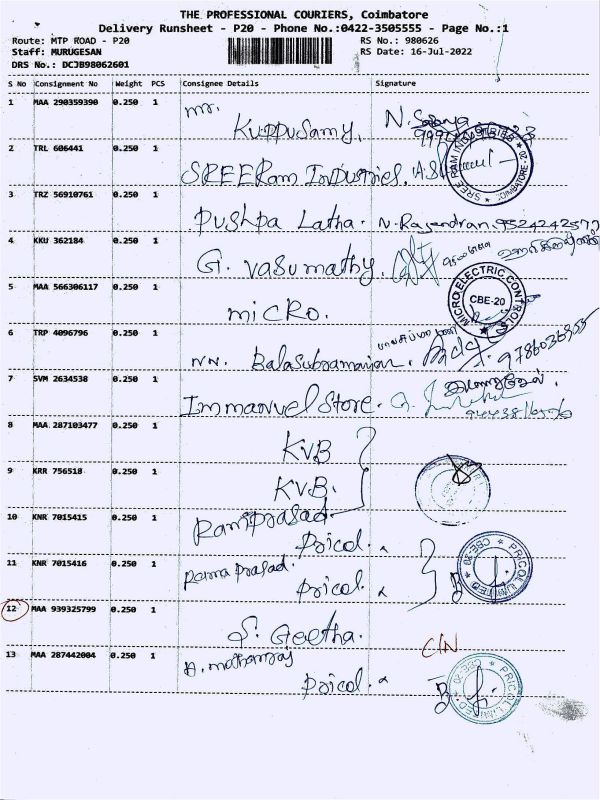 THE PROFESSIONAL COURIERS, Coimbatore
Delivery Runsheet - P20 - Phone No.:0422-3505555 - Page No.:1
Route: MTP ROAD - P20 RS No.: 980626
Staff: MURUGESAN RS Date: 16-Jul-2022
DRS No.: DCJB98062601
S No Consignment No Weight PCS Consignee Details Signature
1 MAA 290359390 0.250 1 mr. Kuppusamy.
2 TRL 606441 0.250 1 SREE Ram Industries. SREE RAM INDUSTRIES
3 TRZ 56910761 0.250 1 Pushpa Latha. N. Rajendran. 9524242577
4 KKU 362184 0.250 1 G. Vasumathy.
5 MAA 566306117 0.250 1 micro. MICRO ELECTRIC CONTROLS CBE-20
6 TRP 4096796 0.250 1 NN. Balasubramanian. 9786036955
7 SVM 2634538 0.250 1 Immanuel Store.
8 MAA 287103477 0.250 1 KVB
9 KRR 756518 0.250 1 KVB.
10 KNR 7015415 0.250 1 Ramprasad Pricol.
11 KNR 7015416 0.250 1 Rama prasad. Pricol. PRICOL LIMITED CBE-20
12 MAA 939325799 0.250 1 S. Geetha. C/N
13 MAA 287442004 0.250 1 Pricol. PRICOL LIMITED CBE-20